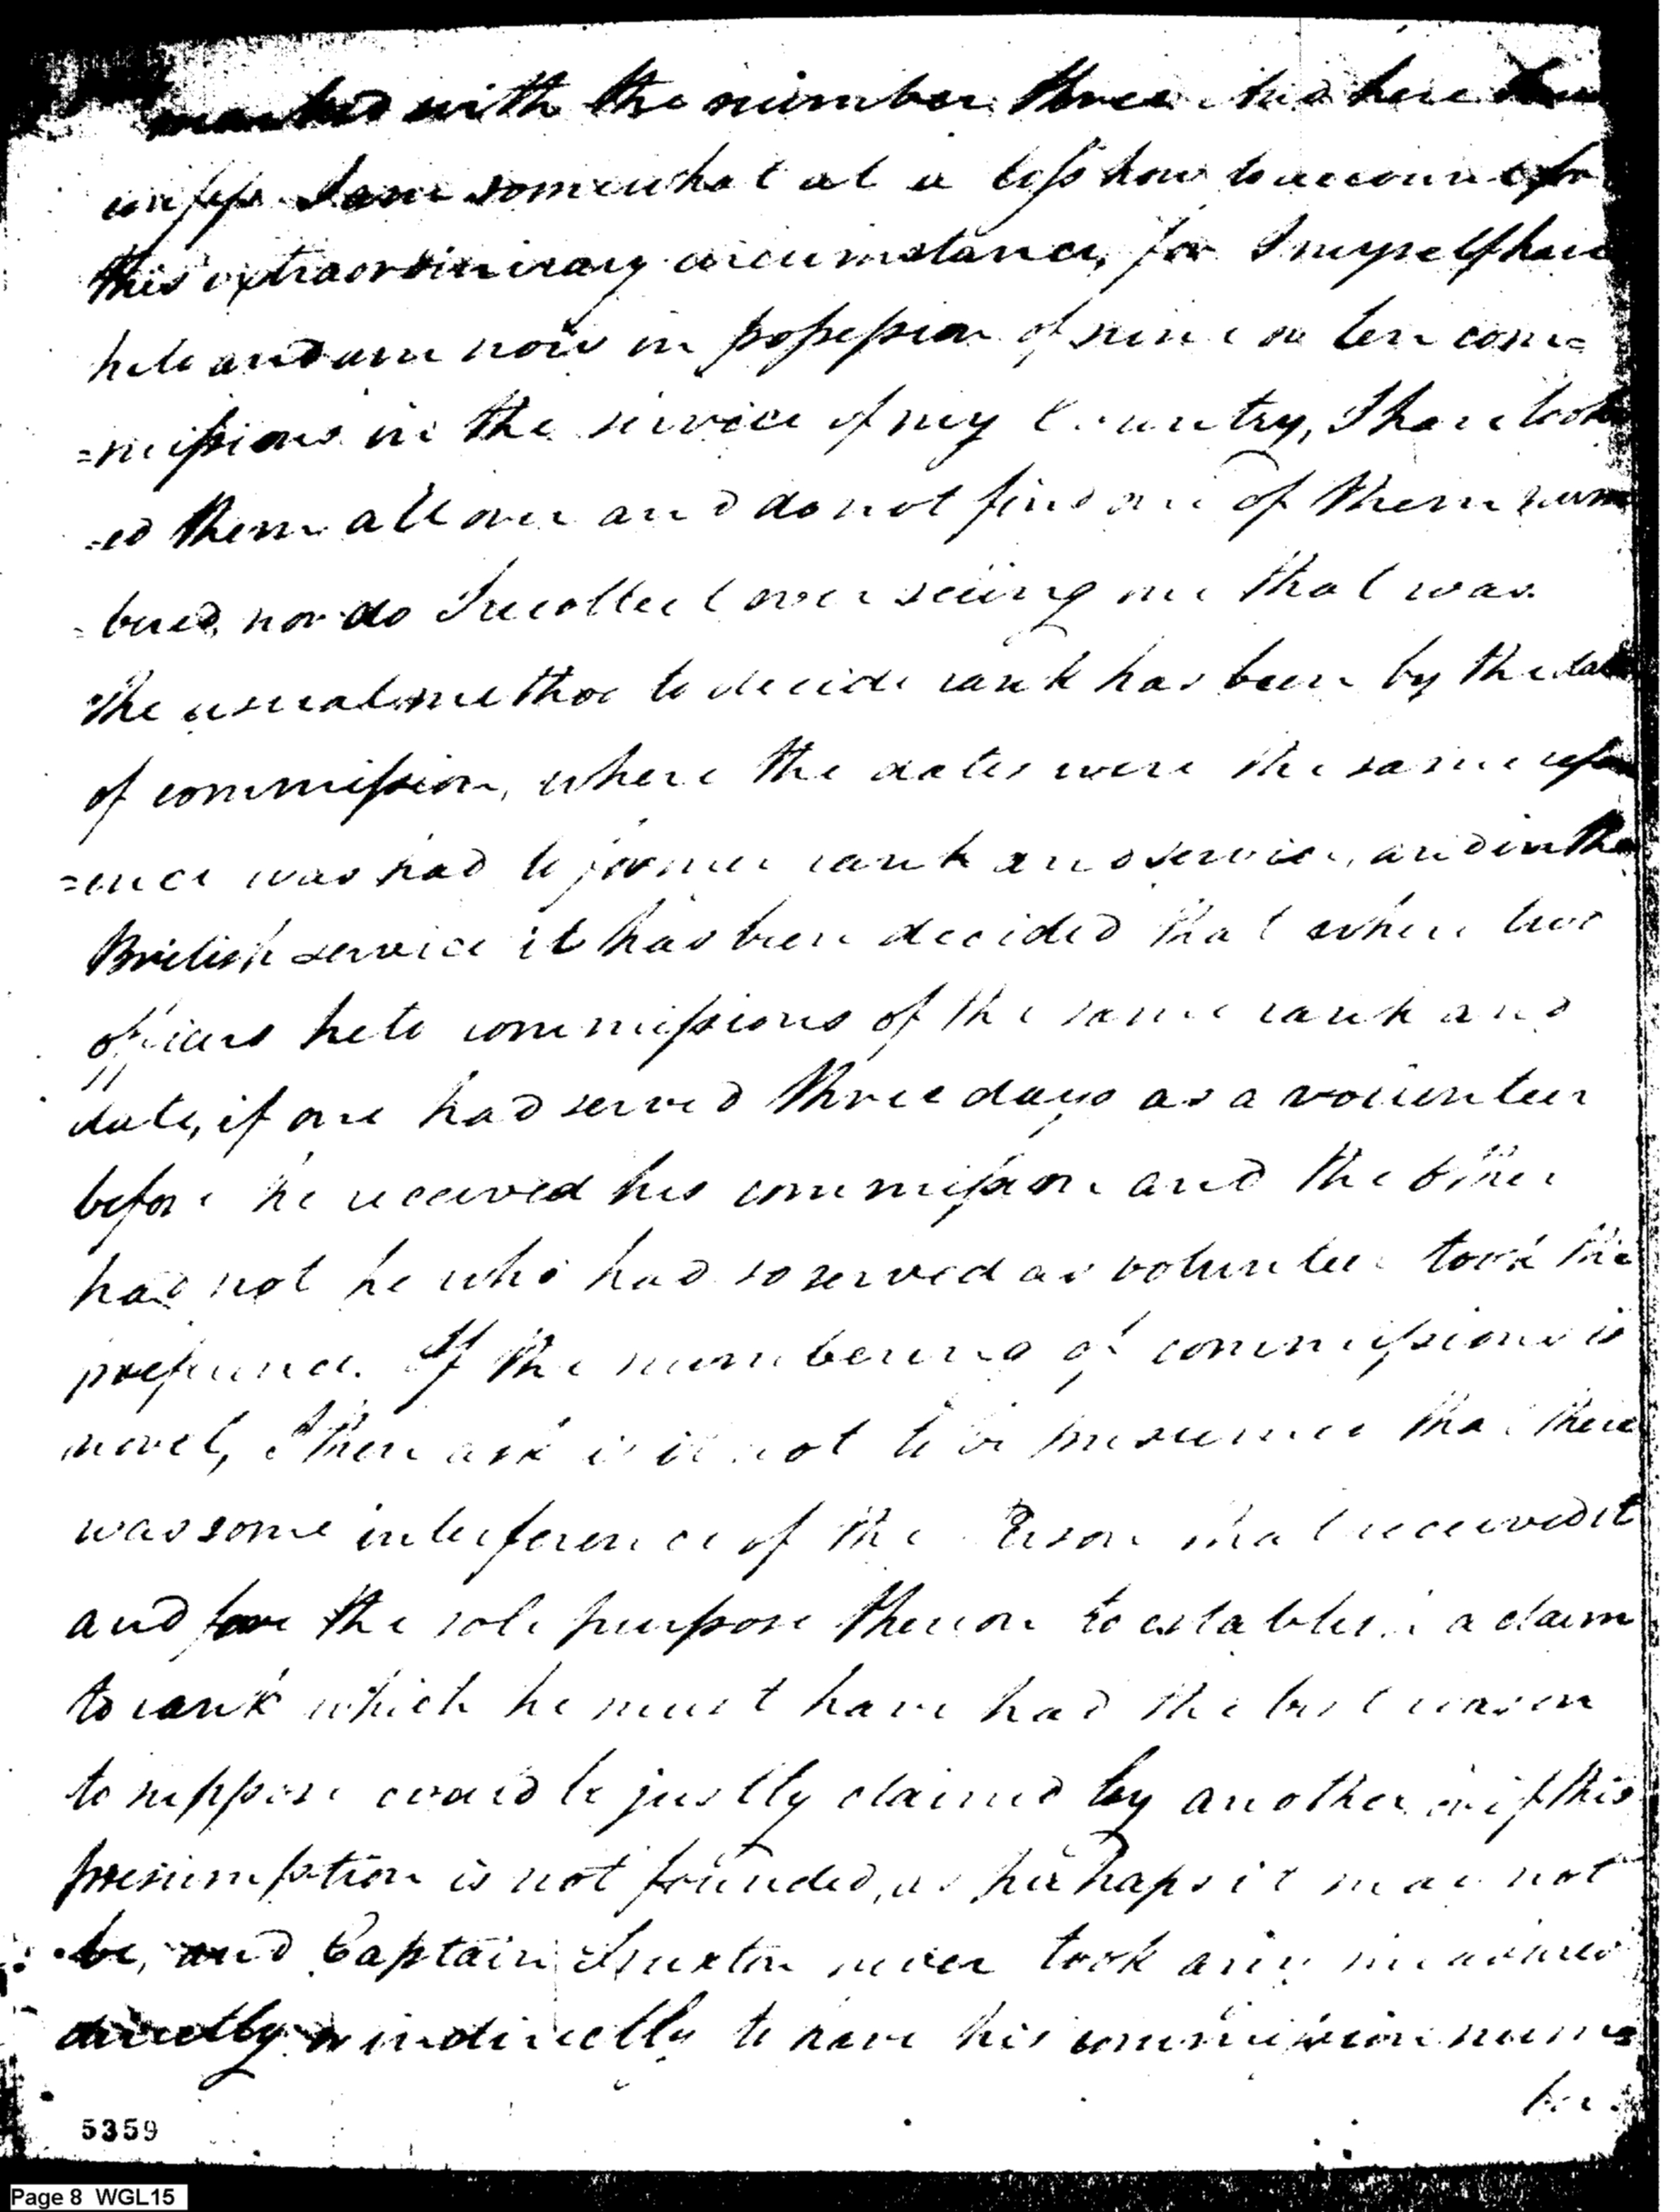 marked with the number three. And here I
confess I am somewhat at a loss how to account for
this extraordinirary circumstance, for I myself have
held and am now in possession of nine or ten com=
=missions in the service of my Country, I have look
=ed them all over and do not find one of them num
=bered, nor do I recollect ever seeing one that was.
The usual method to decide rank has been by the date
of commission, where the dates were the same refer
=ence was had to former rank and service, and in the
British service it has been decided that where two
officers held commissions of the same rank and
date, if one had served three days as a volunteer
before he received his commission and the other
had not he who had so served as volunteer took the
preference. If the numbering of commissions is
novel, I then ask is it not to be presumed that there
was some interference of the Person that received it
and for the sole purpose thereon to establish a claim
to rank which he must have had the best reason
to suppose could be justly claimed by another, or if this
presumption is not founded, as perhaps it may not
be, and Captain Truxton never took any measures
directly or indirectly to have his commission num=
ber
5359
Page 8 WGL15